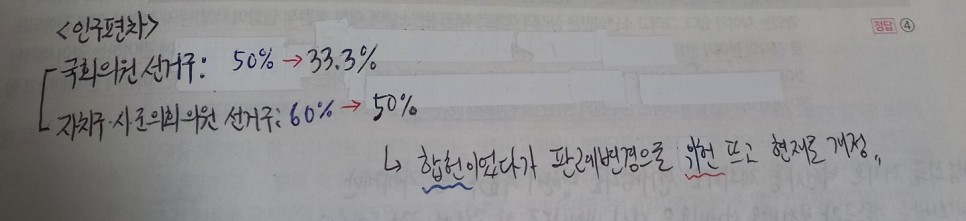 <인구편차>
정답 ④
국회의원 선거구: 50% → 33.3%
자치구·시·군의회의원 선거구: 60% → 50%
↳ 합헌이었다가 판례변경으로 위헌 뜨고 현재로 개정〃